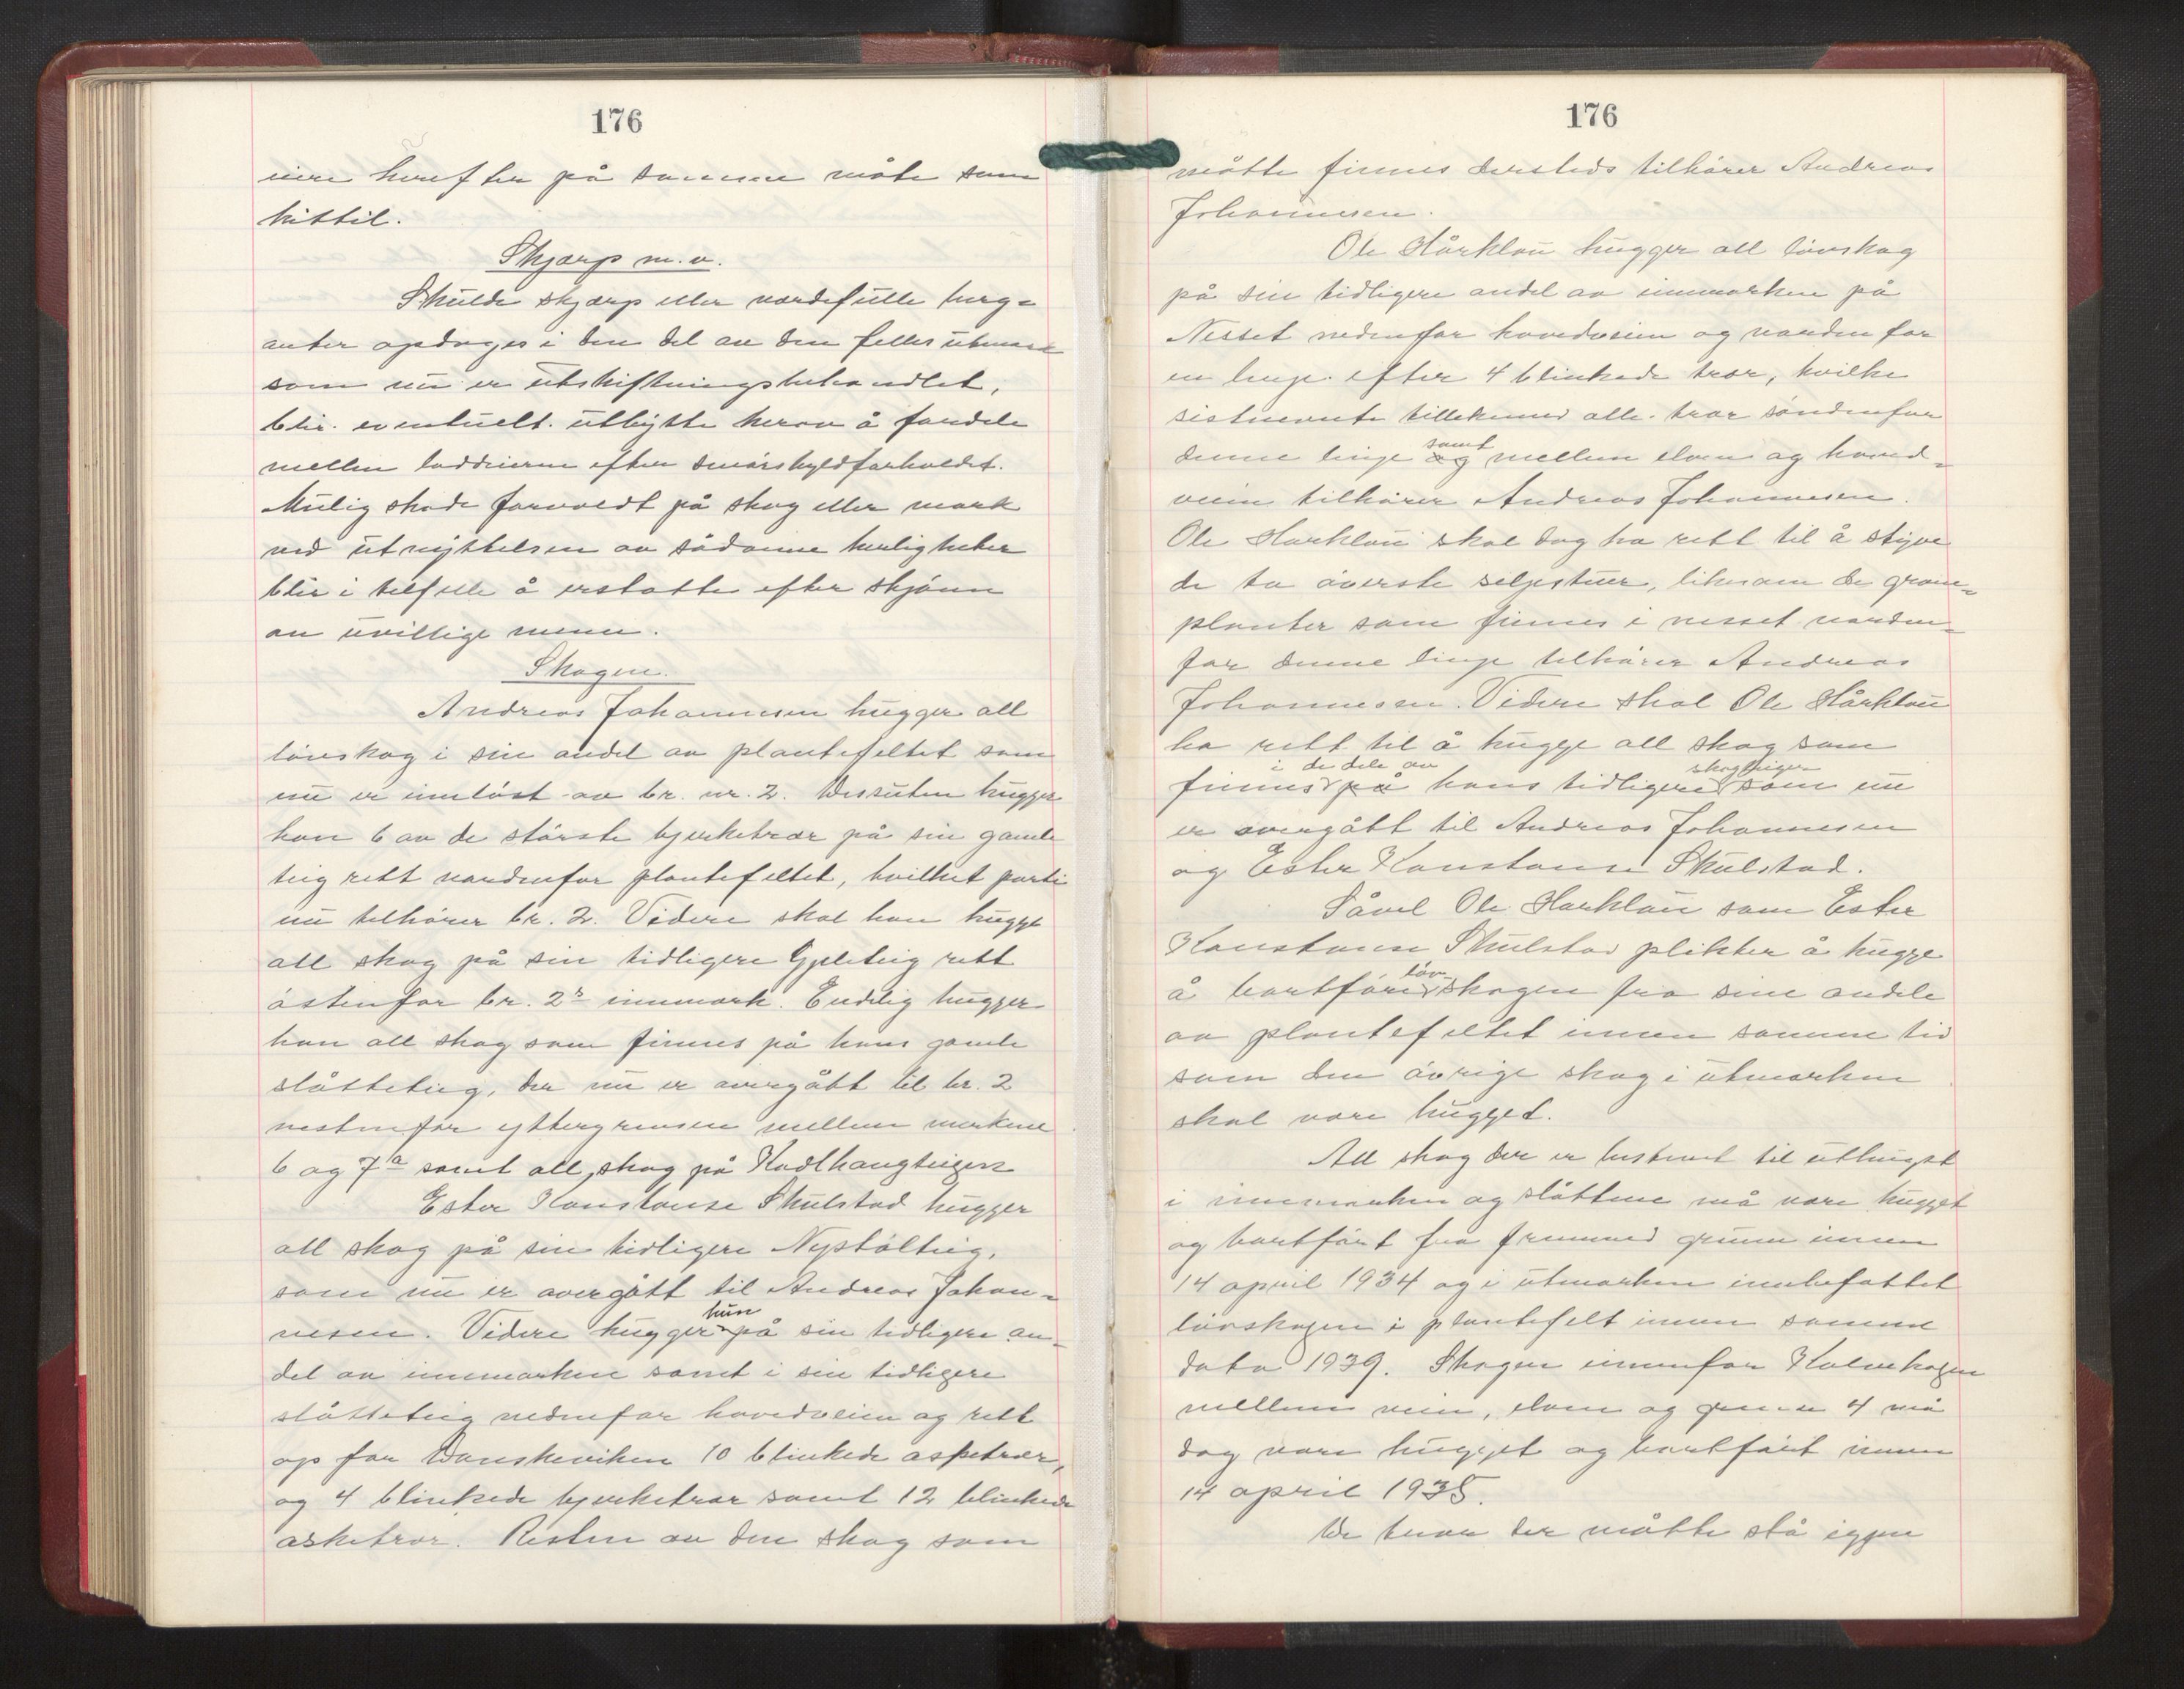 176
eiere herefter på samme måte som
hittil.
Skjærp m.v.
Skulde skjærp eller verdefulle berg-
arter opdages i den del av den felles utmark
som nu er utskiftningsbehandlet,
blir eventuelt utbytte herav å fordele
mellem loddeierne efter smørskyldforholdet.
Mulig skade forvoldt på skog eller mark
ved utnyttelsen av sådanne herligheter
blir i tilfelle å erstatte efter skjønn
av uvillige menn.
Skogen.
Andreas Johannesen hugger all
løvskog i sin andel av plantefeltet som
nu er innløst av br. nr. 2. Dessuten hugger
han 6 av de største bjerketrær på sin gamle
teig rett nordenfor plantefeltet, hvilket parti
nu tilhører br. 2. Videre skal han hugge
all skog på sin tidligere Gjeleteig rett
østenfor br. 2s innmark. Endelig hugger
han all skog som finnes på hans gamle
slåtteteig, der nu er overgått til br. 2
vestenfor yttergrensen mellem merkene
6 og 7a samt all skog på Kodlhaugteigen
Ester Konstanse Skulstad hugger
all skog på sin tidligere Nystølteig,
som nu er overgått til Andreas Johan-
nesen. Videre hugger hun på sin tidligere an-
del av innmarken samt i sin tidligere
slåtteteig nedenfor hovedveien og rett
op for Danskeviken 10 blinkede aspetrær,
og 4 blinkede bjerketrær samt 12 blinkede
asketrær. Resten av den skog som
176
måtte finnes dersteds tilhører Andreas
Johannesen.
Ole Hårklau hugger all løvskog
på sin tidligere andel av innmarken på
Nesset nedenfor hovedveien og norden for
en linje efter 4 blinkede trær, hvilke
sistnevnte tillikemed alle trær søndenfor
denne linje og samt mellem elven og hoved-
veien tilhører Andreas Johannesen.
Ole Harklau skal dog ha rett til å styve
de to øverste seljestuer, likesom de grane-
planter som finnes i nesset norden-
for denne linje tilhører Andreas
Johannesen. Videre skal Ole Hårklau
ha rett til å hugge all skog som
finnes i de dele av på hans tidligere skogteiger som nu
er overgått til Andreas Johannesen
og Ester Konstanse Skulstad.
Såvel Ole Harklau som Ester
Konstanse Skulstad plikter å hugge
å bortføre løvskogen fra sine andele
av plantefeltet innen samme tid
som den øvrige skog i utmarken
skal være hugget.
All skog der er bestemt til uthugst
i innmarken og slåttene må være hugget
og bortført fra fremmed grunn innen
14 april 1934 og i utmarken innbefattet
løvskogen i plantefelt innen samme
dato 1939. Skogen innenfor Kalvehagen
mellem veien, elven og grense 4 må
dog være hugget og bortført innen
14 april 1935.
De trær der måtte stå igjen